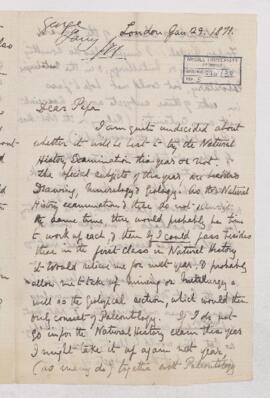 George
London Jan 29. 1871.
McGILL UNIVERSITY
ARCHIVES
Dear Papa
I am quite undecided about
whether it will be best to try the Natural
History Examination this year or not.
the special subjects of this year are
Drawing, Mineralogy & Geology. As the Natural
History examination & these do not
the same time, there would probably be time
to work up each, & then if I could pass besides
these in the first class in Natural History
it would relieve me for next year, & probably
allow me to take up Mining or Metallurgy as
well as the Geological section, which would then
only consist of Palæontology. If I do not
go in for the Natural History exam this year
I might take it up again next year,
(as many do) together with Palæontology